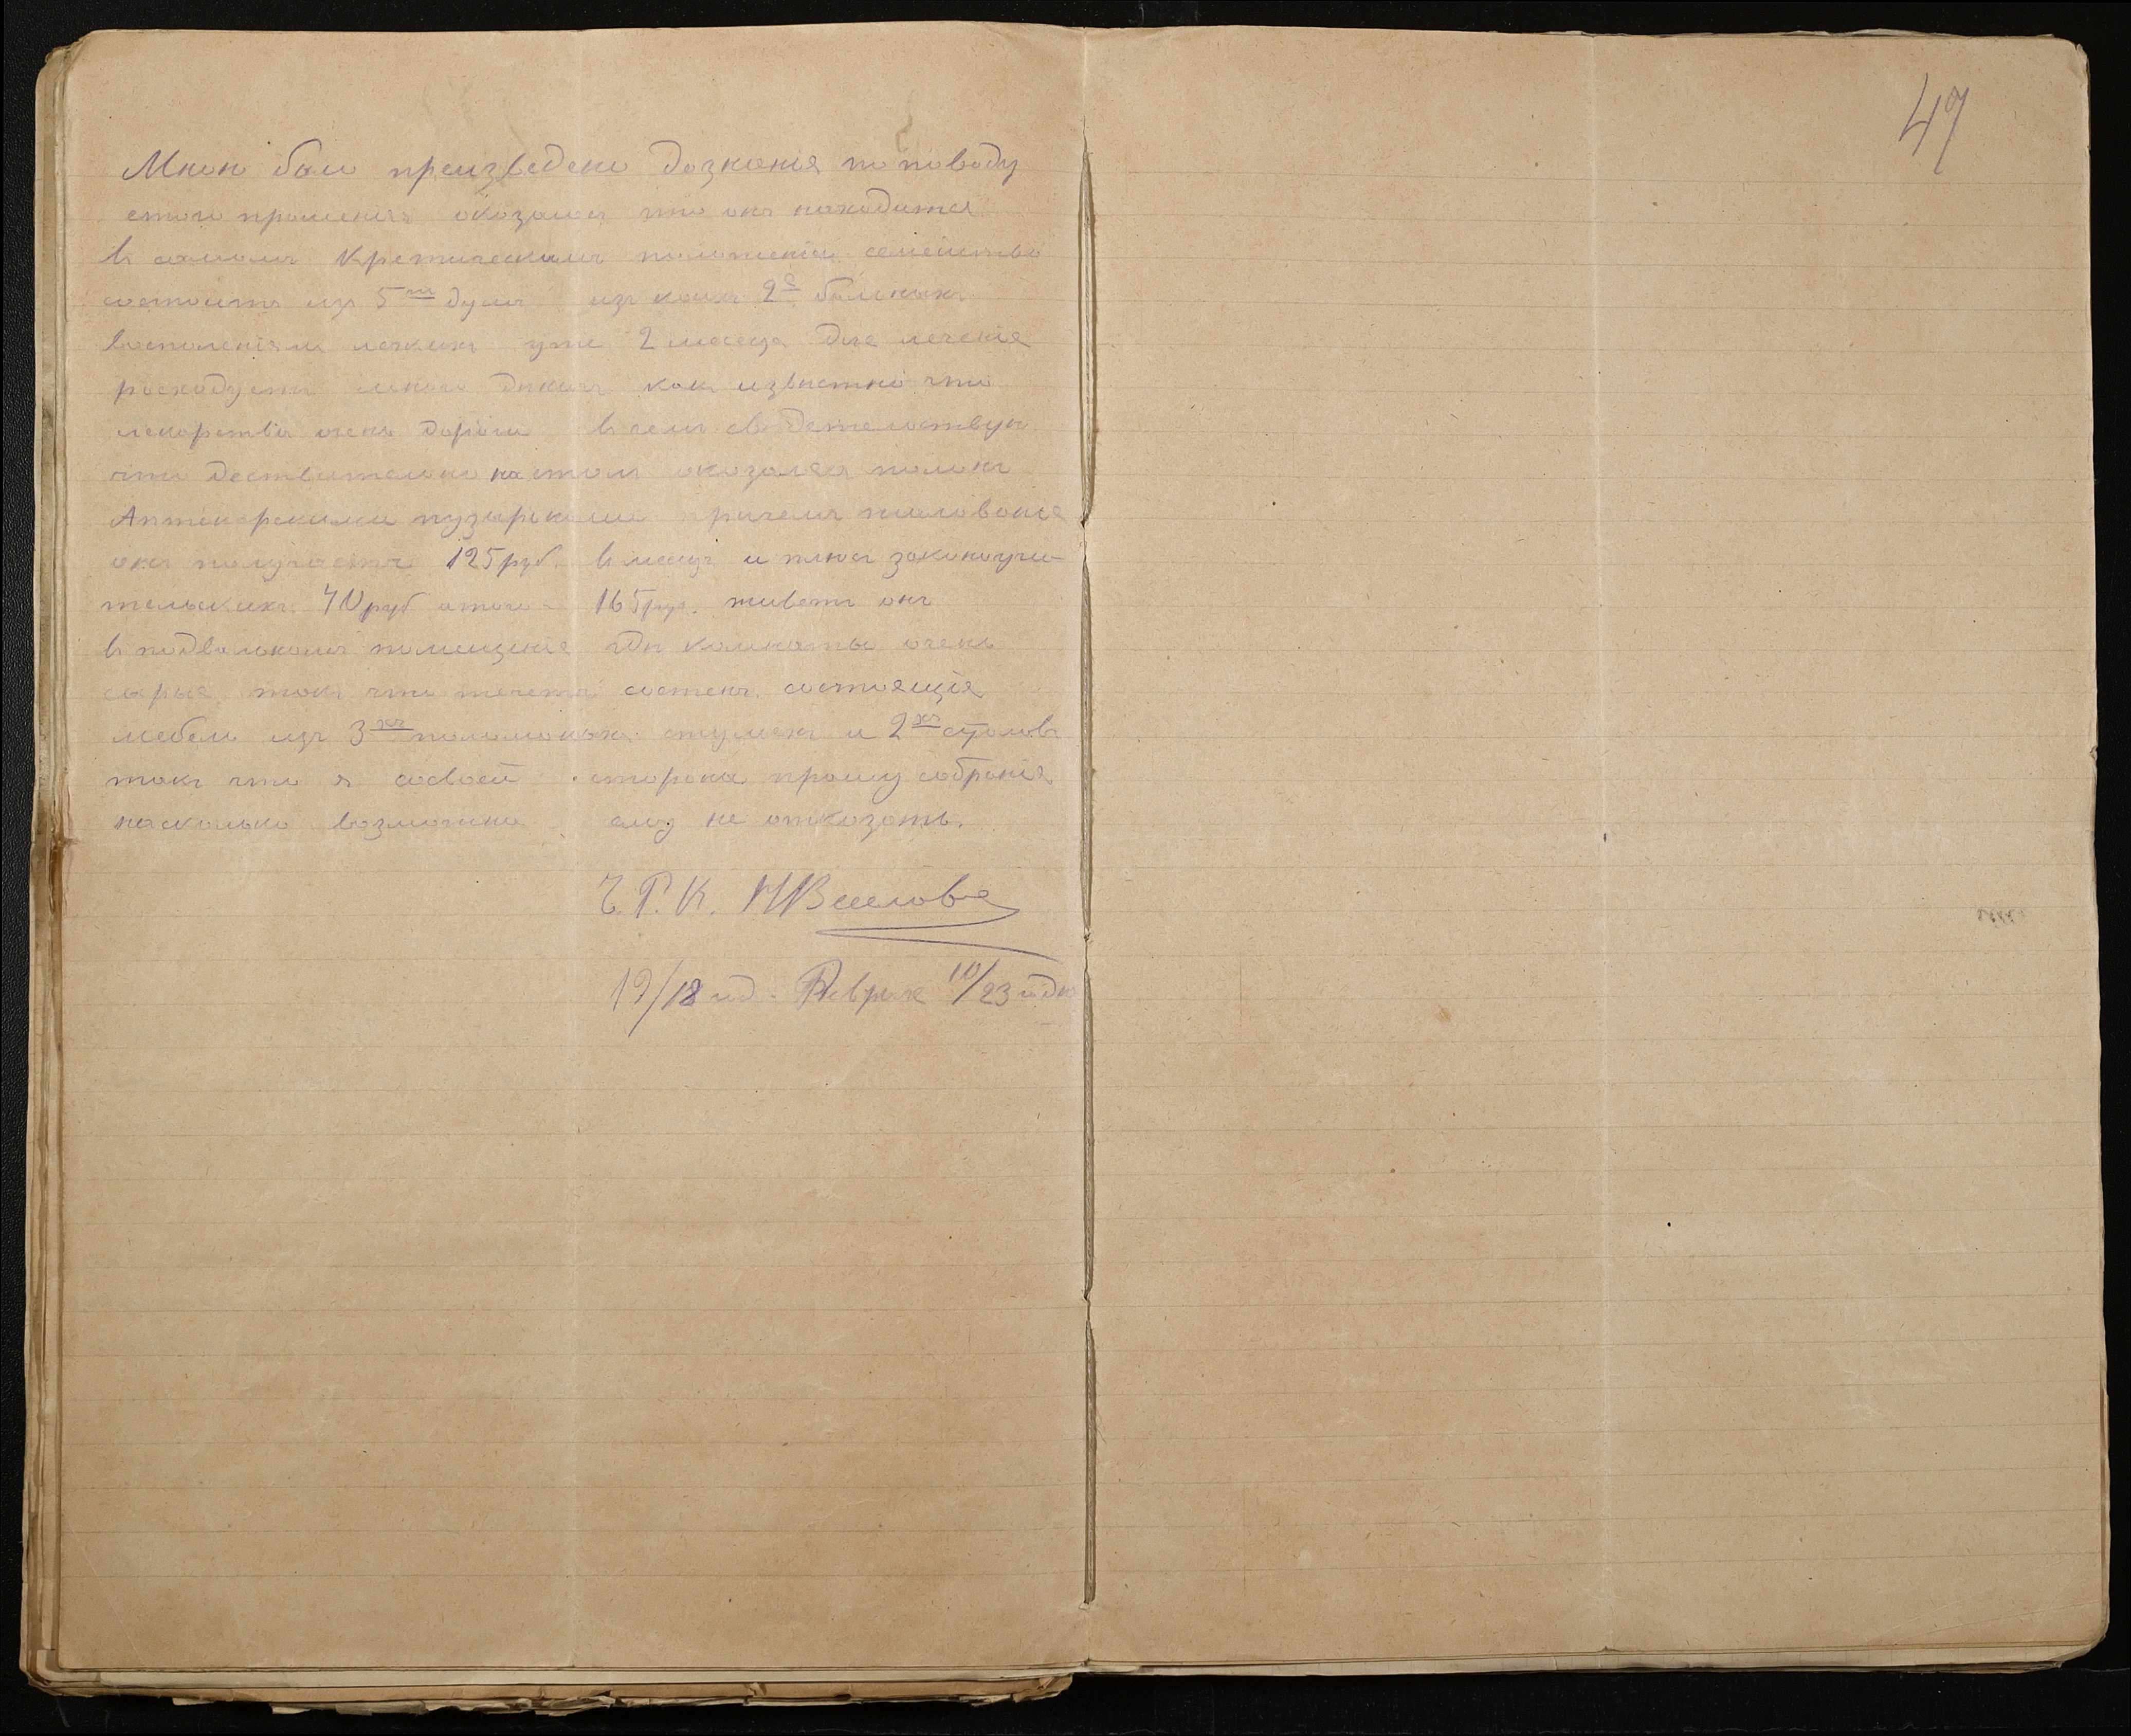 47
Мною было преизведено дознанія по поводу
етого прошенія оказался что онъ находится
въ самомъ Кретическомъ положеніи семейство
состоитъ изъ 5ти душъ изъ коихъ 2е больныхъ
воспаленіями легкихъ уже 2 месеца для леченія
росходуетъ много дѣнегъ какъ извѣстно что
лекорства очень дороги въ семъ сведетельствую
что Дествительно на столѣ оказался полонъ
Аптекарскими пузырьками причемъ жалованіе
онъ получаетъ 125 руб. въ месецъ и плюсъ законоучи-
тельскихъ 40 руб итого - 165 руб. живетъ онъ
въ подвальномъ помещеніе гдѣ комнаты очень
сырые такъ что течетъ состенъ. состоящія
мебель изъ 3хъ поломоныхъ стульевъ и 2хъ столовъ
такъ что я совоей стороны прошу собранія
насколько возможно ему не отказать.
Ч. Р. К.
19/18 год. Феврал 10/23 дня